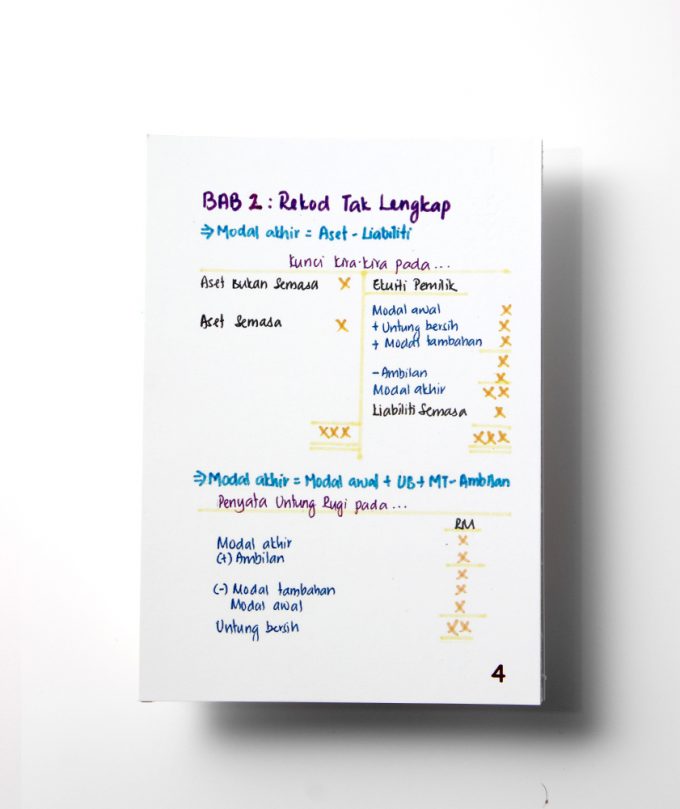 BAB 2: Rekod Tak Lengkap
⇒ Modal akhir = Aset - Liabiliti
Kunci kira-kira pada...
Aset Bukan Semasa X Ekuiti Pemilik
Modal awal X
Aset Semasa X + Untung bersih X
+ Modal tambahan X
X
- Ambilan X
Modal akhir XX
Liabiliti Semasa X
XXX XXX
⇒ Modal akhir = Modal awal + UB + MT - Ambilan
Penyata Untung Rugi pada...
RM
Modal akhir X
(+) Ambilan X
X
(-) Modal tambahan X
Modal awal X
Untung bersih XX
4